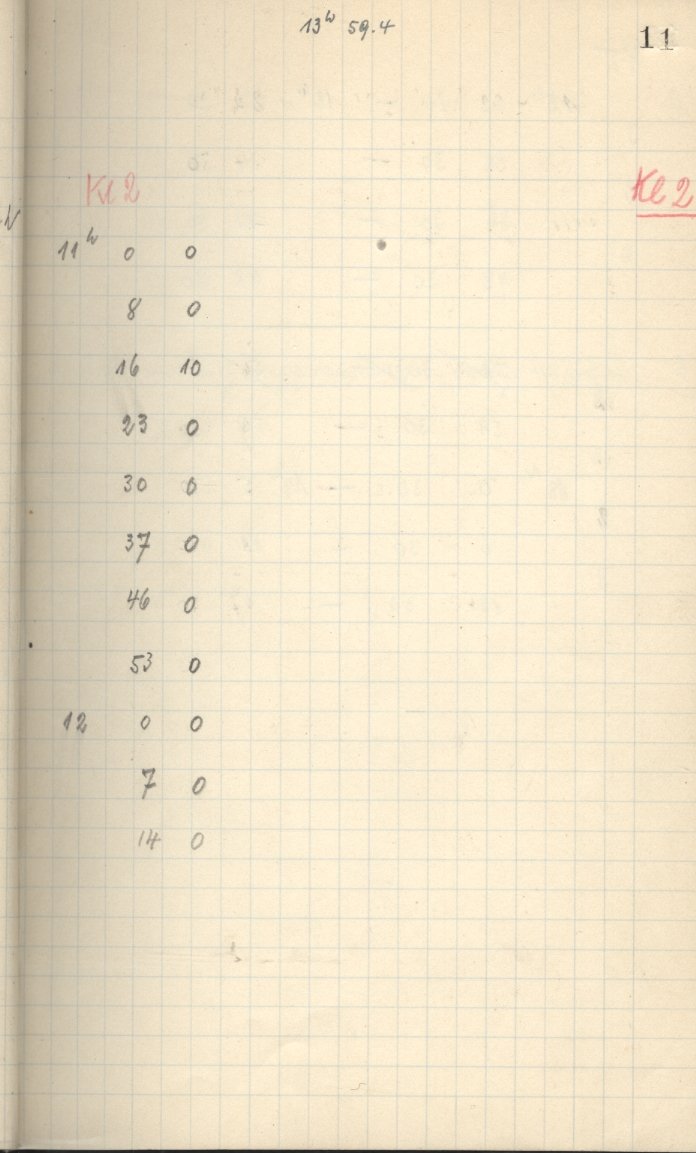 13h 59.4
11
Kl 2
Kl 2
11h 0 0
8 0
16 10
23 0
30 0
37 0
46 0
53 0
12 0 0
7 0
14 0